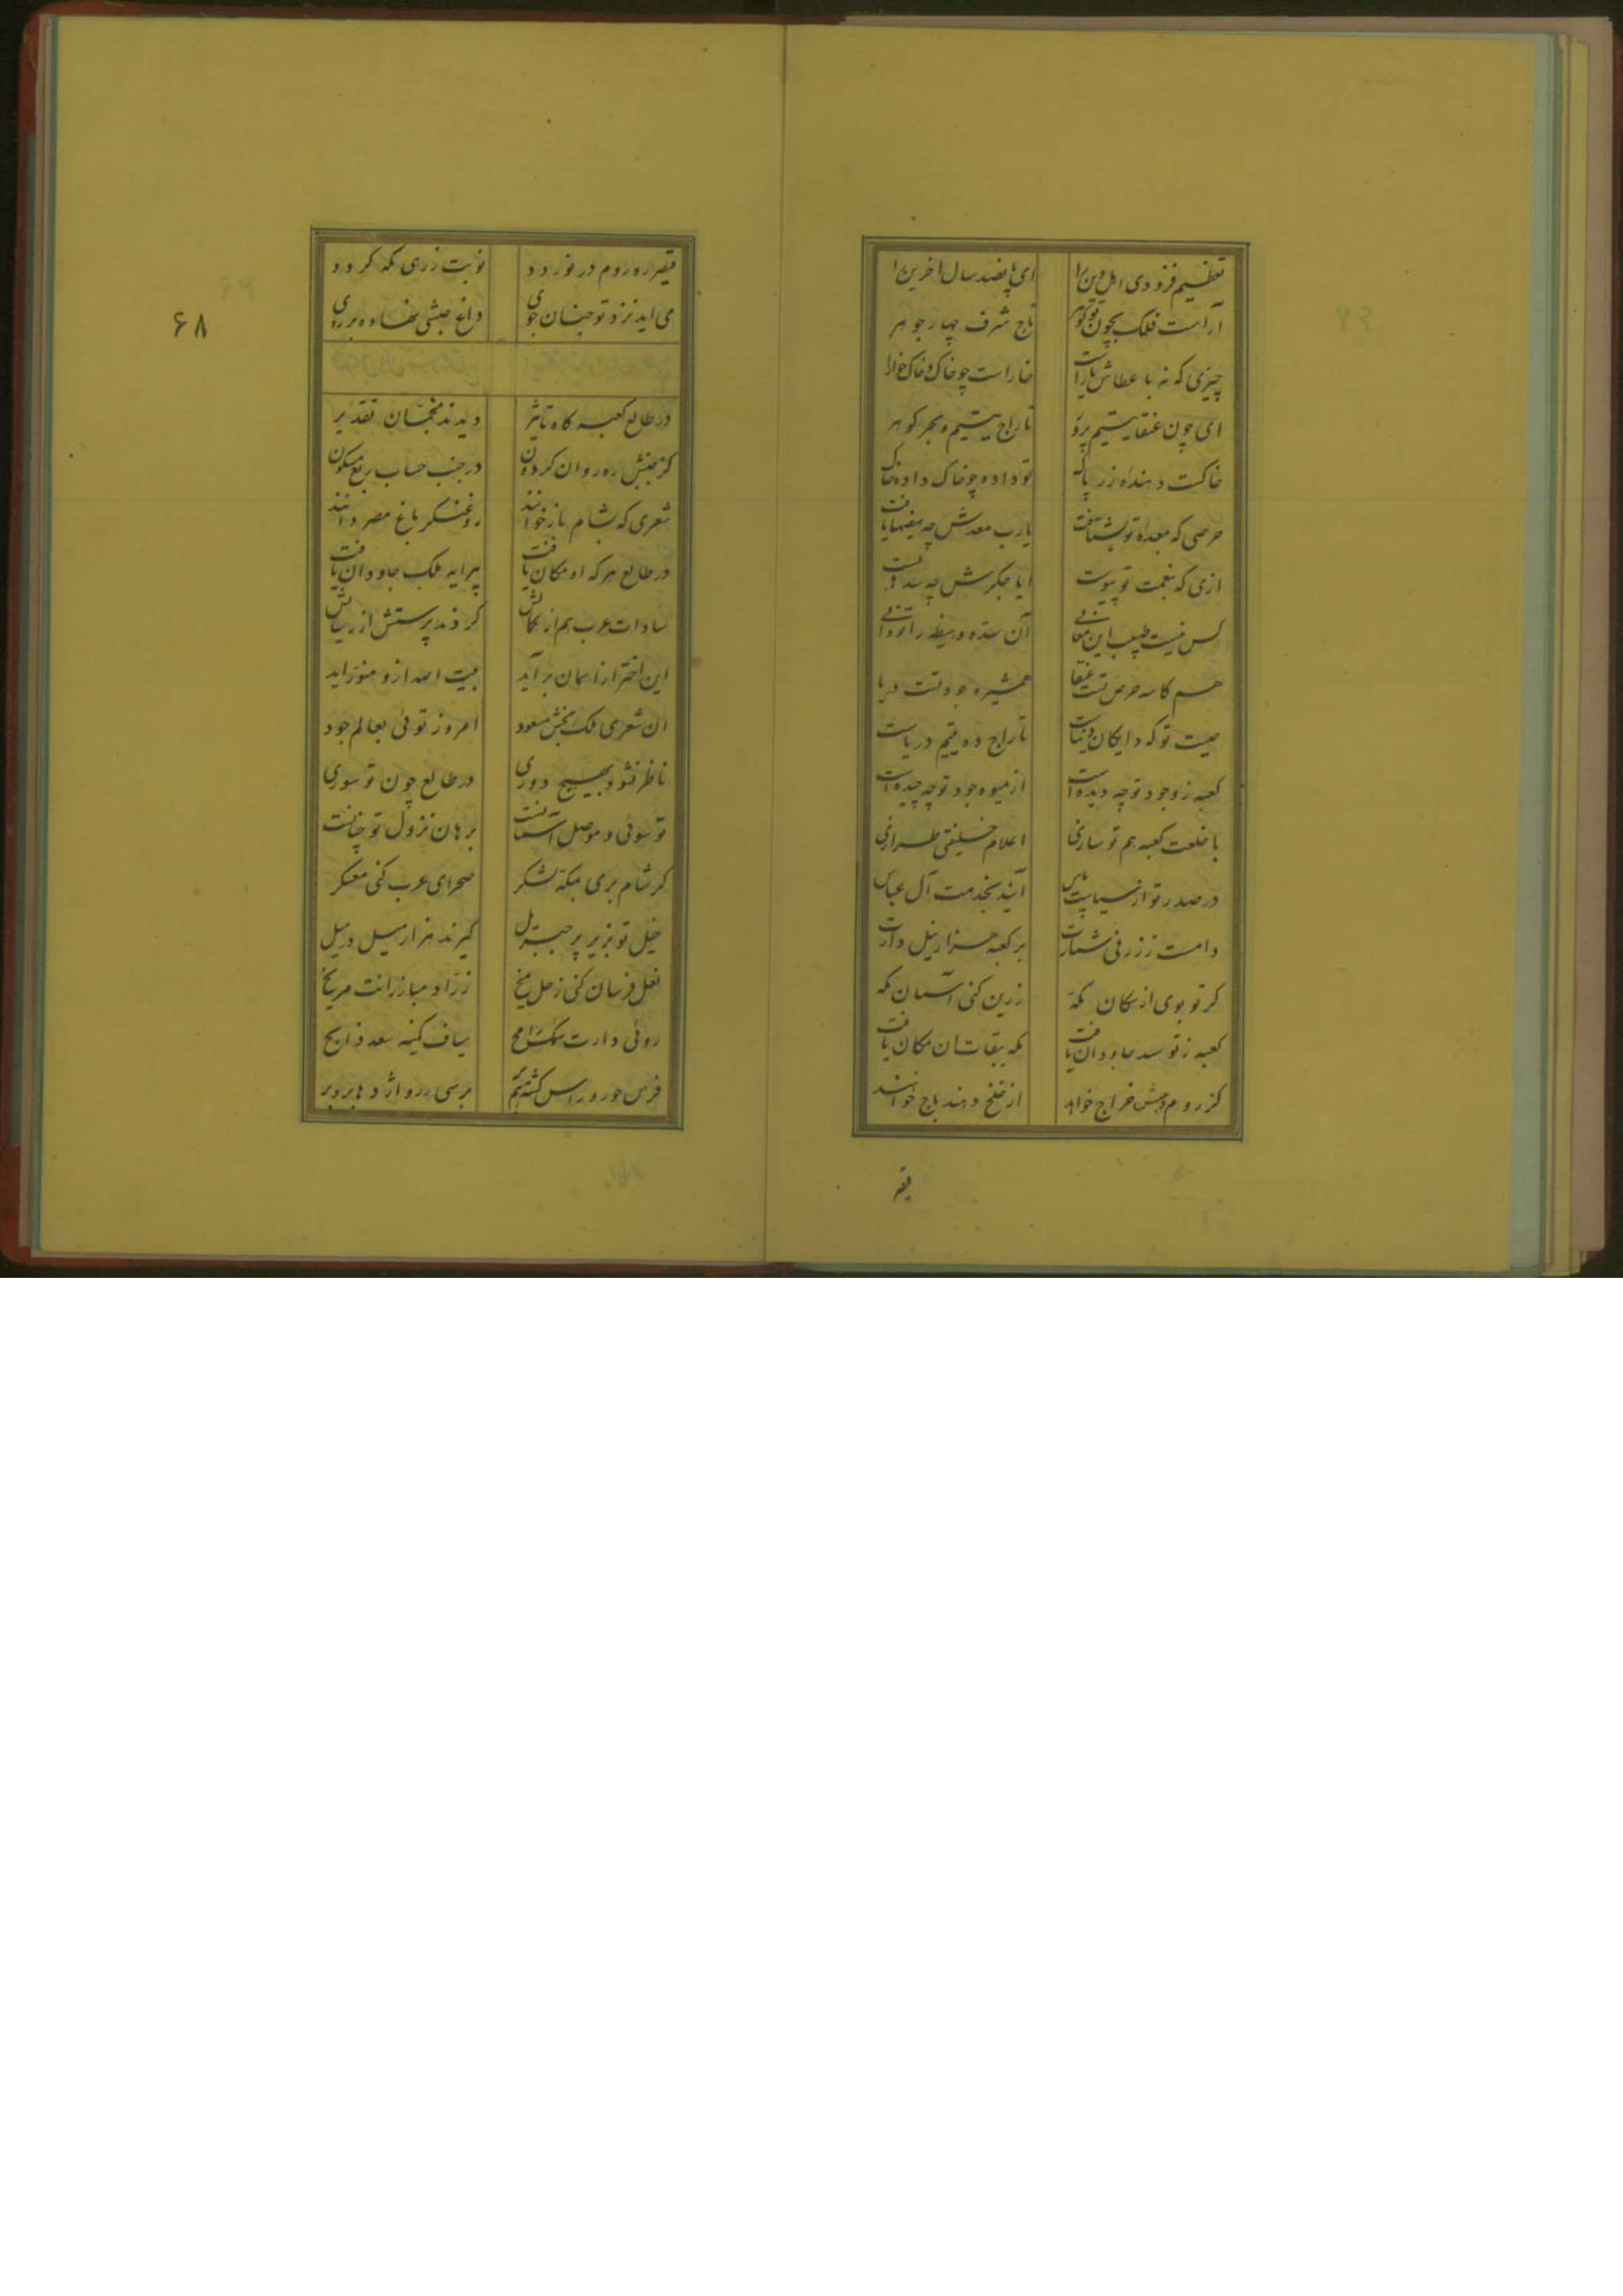 تعظیم فزودی اهل دین را ای پانصد سال آخرین را
آراست فلک بچون تو گوهر تاج شرف چهار جوهر
چیزی که نه با عطاش یاراست خاراست چو خاک و خاک خارا
ای چون عنقا یتیم پرور تاراج یتیم و بحر کوهر
خاکست دهنده زر پاک تو داده چو خاک داده خاک
حرصی که بمعده تو بشتافت یارب معدش چه هیضها یافت
ازی که بنعمت تو پیوست ایا جگرش چه سدها بست
کس نیست طبیب این معانی آن سده و هیضه را تو دانی
هم کاسه حرص تست عنقا همشیره جود تست دریا
تو که داییکان تاراج ده یتیم دریاست
کعبه ز وجود تو چه دیده است از میوه جود تو چه چیده است
با خلعت کعبه هم تو سازی اعلام خلیفتی طرازی
در صدر تو از سیاست پاس آیند بخدمت آل عباس
دامت ززر فی شمارت بر کعبه هزار نیل دارت
کر تو بوی از مکان مکه زرین کنی آسمان مکه
کعبه ز تو سد جاودان یافت مکه بقات ان مکان یافت
کز روم و حبش خراج خواهد از خلخ و هند باج خواهند
قیصر
۶۸
قیصر ره روم در نوردد نوبت زن ی مکه کردد
می اید نزد تو جنان جوی داغ حبشی نهاده بر روی
در طالع کعبه کاه تاثیر دیدند منجمان تقدیر
کز جنبش ره روان کردون در جنب حساب ربع مسکون
شعری که بشام باز خوانند روغنکر باغ مصر دانند
در طالع هر که او مکان یافت پیرایه ملک جاودان یافت
سادات عرب هم از کمالش کردند پرستش از ر
این اختر از اسمان بر آید بیت الله ازو منور اید
ان شعری ملک بخش مسعود امروز توئی بعالم جود
ناظر نشود بهیچ دوری در طالع چون تو سوری
تو سوئی و موصل آسمانت برهان نزول تو چنانست
کر شام بری بمکه لشکر صحرای عرب کنی معسکر
خیل تو بزیر پر جبریل گیرند هزار میل در میل
نعل فرسان کنی ز حل میخ زراد مبارزانت مریخ
روئی دارت سماک رامح سیاف کمینه سعد ذابح
فرس خور و راس کشته بر سی ررو اژدها برو بر